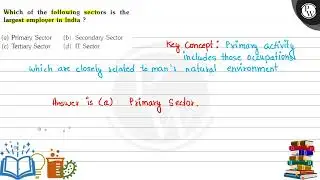 Which of the following sectors is the
largest employer in India ?
(a) Primary Sector (b) Secondary Sector
(c) Tertiary Sector (d) IT Sector
Key Concept: Primary activity
includes those occupations
which are closely related to man's natural environment
Answer is (a) Primary Sector.